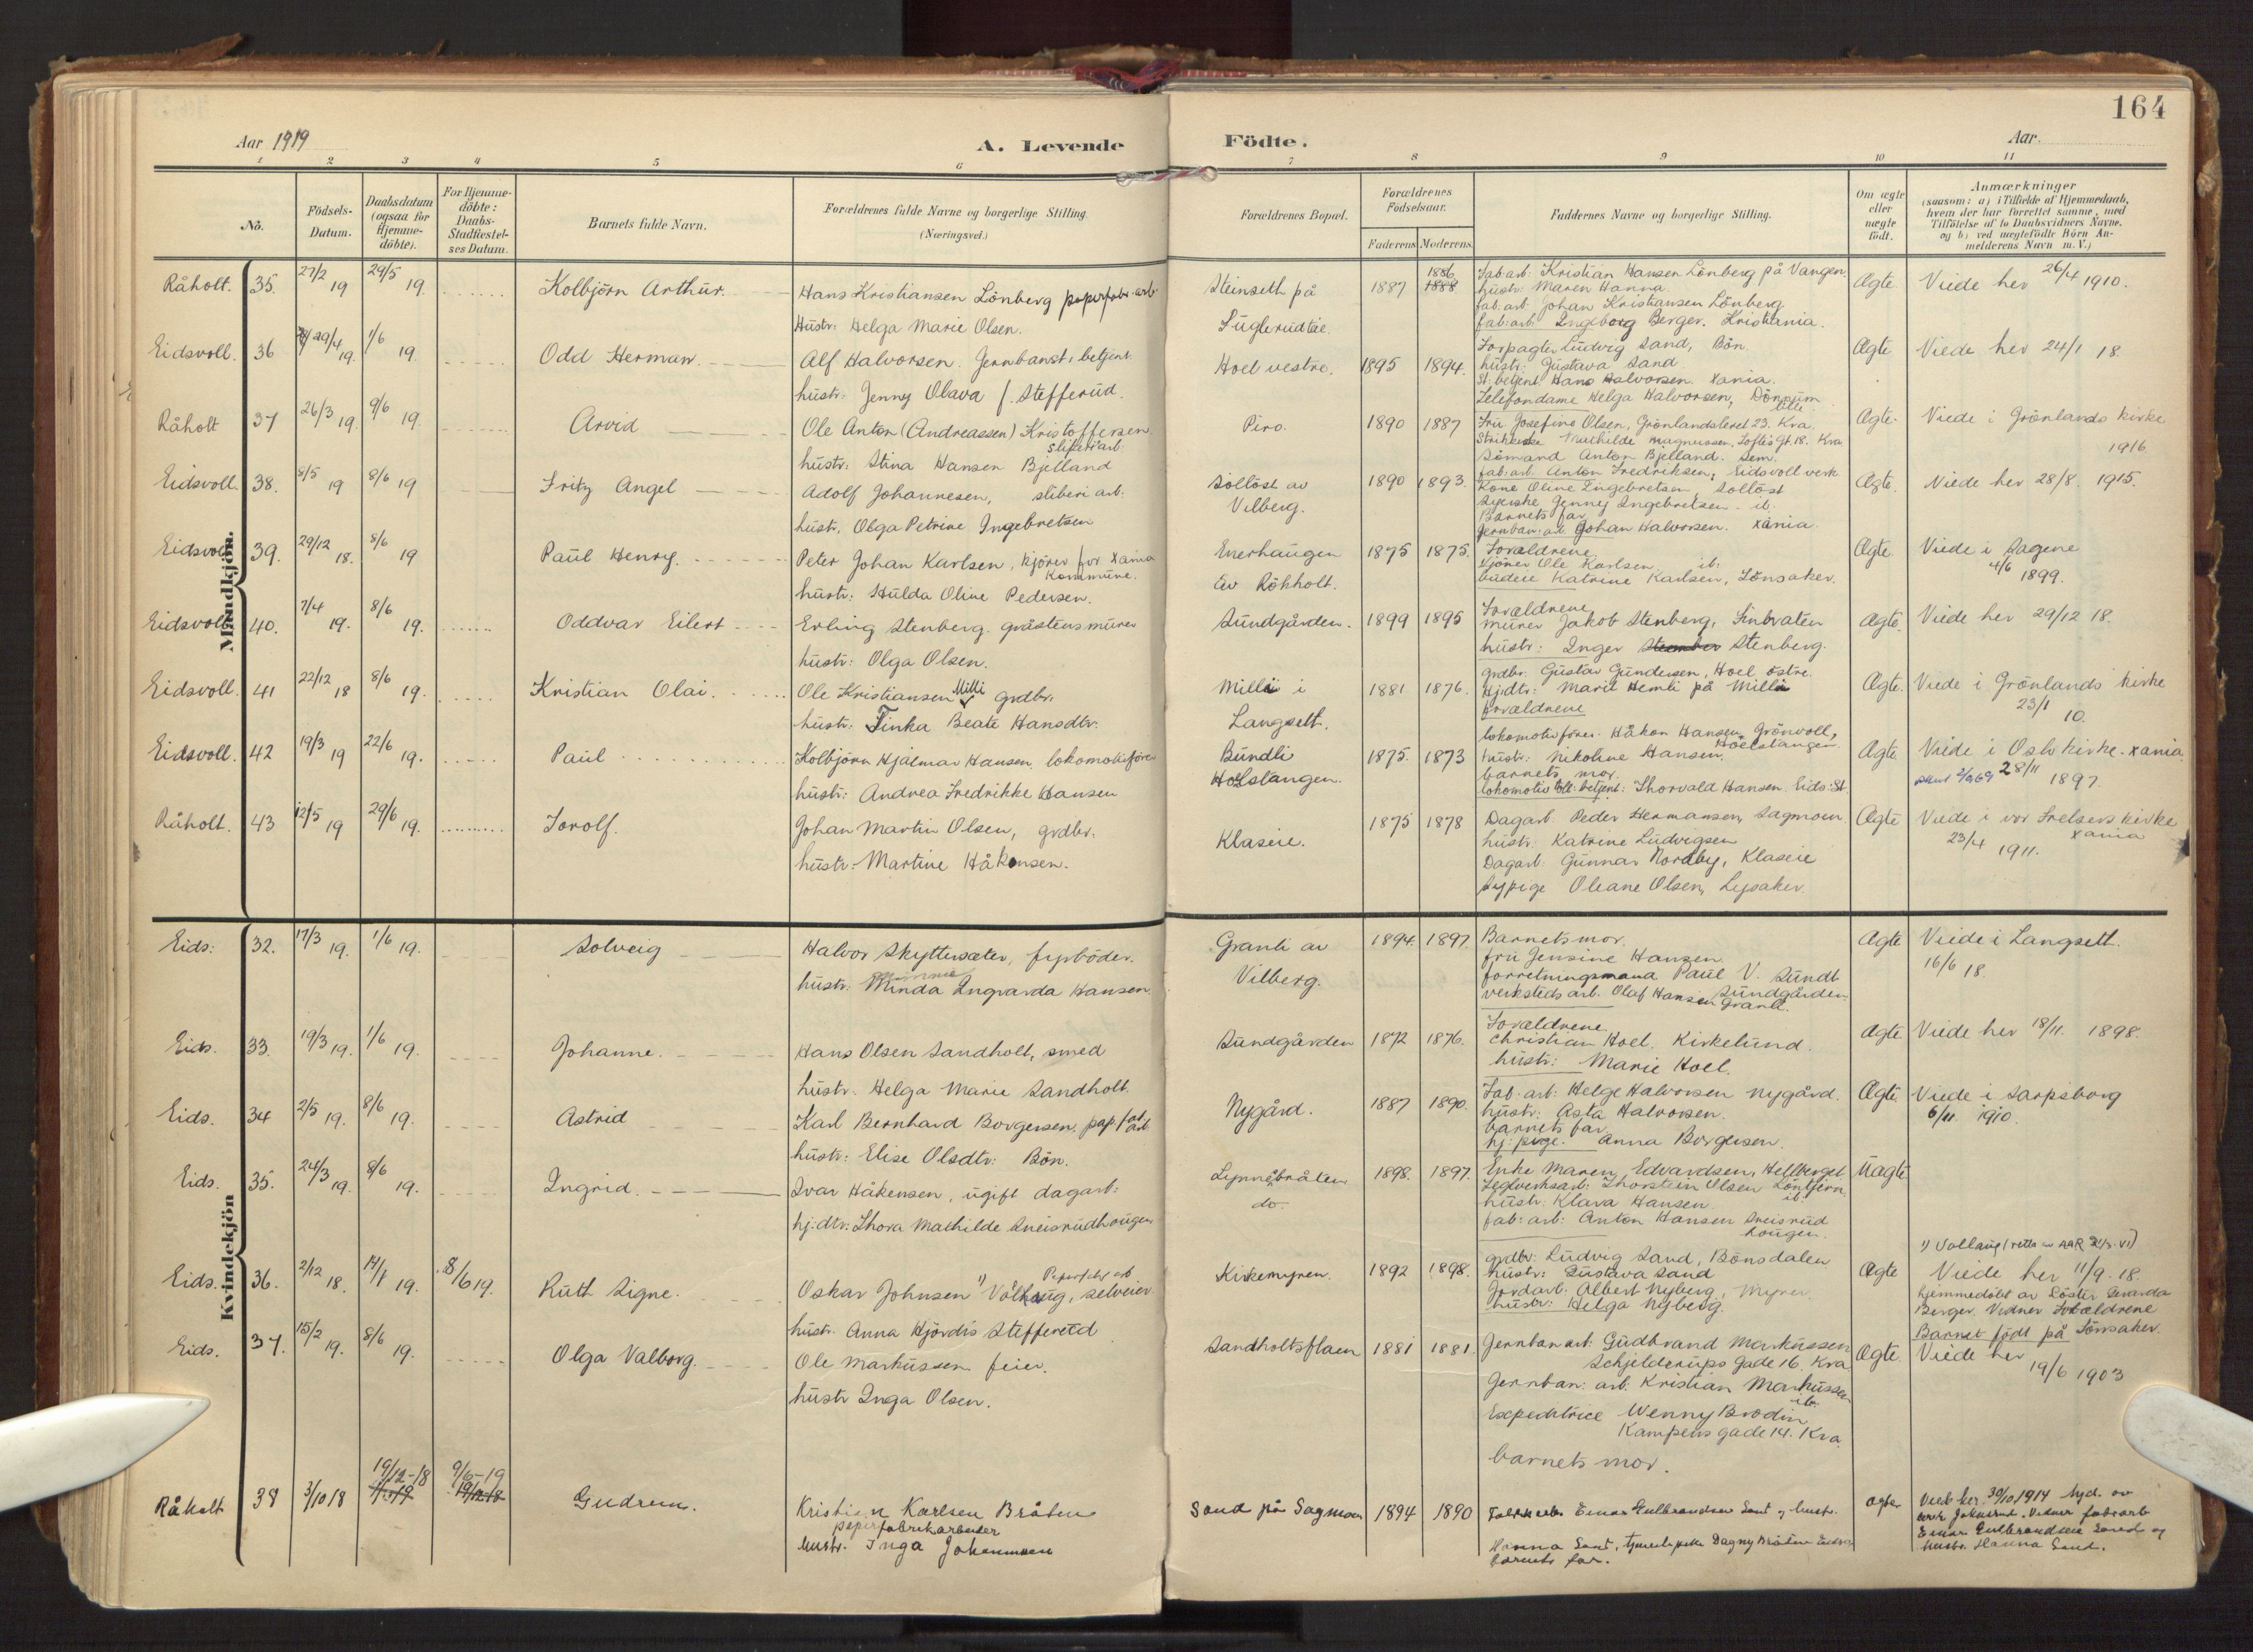 164
Aar 1919
A. Levende Födte.
Aar.
1 2 3 4 5 6 7 8 9 10 11
No.
Födsels-Datum.
Daabsdatum (ogsaa for Hjemmedöbte).
For Hjemmedöbte: Daabs-Stadfæstelses Datum.
Barnets fulde Navn.
Forældrenes fulde Navne og borgerlige Stilling. (Næringsvei.)
Forældrenes Bopæl.
Forældrenes Födselsaar.
Faderens Moderens
Faddernes Navne og borgerlige Stilling.
Om ægte eller uægte födt.
Anmærkninger
(saasom: a) i Tilfælde af Hjemmedaab, hvem der har forrettet samme, med Tilföielse af to Daabsvidners Navne, og b) ved uægtefödte Börn Anmelderens Navn m. V.)
Mandkjön.
Råholt. 35. 27/2 19 29/5 19. Kolbjörn Arthur. Hans Kristiansen Lönberg papirfabr. arb.
Hustr: Helga Marie Olsen.
Steinseth på
Fuglerudeie.
1887 1886 1888
Fab. arb: Kristian Hansen Lönberg på Vangen.
hustr: Maren Hanna.
fab. arb. Johan Kristiansen Lönberg
fab: arb: Ingeborg Berger. Kristiania.
Ægte Viede her 26/4 1910.
Eidsvoll. 36 29/4 19. 1/6 19. Odd Herman. Alf Halvorsen. Jernbanest: betjent.
hustr: Jenny Olava f. Stefferud.
Hoel vestre. 1895 1894.
Forpagter Ludvig Sand, Bön.
hustr: Gustava Sand
St. betjent. Hans Halvorsen. Xania.
Telefondame Helga Halvorsen, Dönnum lille.
Ægte Viede her 24/1 18.
Råholt 37 26/3 19. 9/6 19. Arvid Ole Anton (Andreassen) Kristoffersen
sliberiarb.
hustr: Stina Hansen Bjelland
Piro. 1890 1887
Fru Josefine Olsen, Grönlandsleret 23. Kra.
Mathilde Magnussen, Toftes Gt. 18. Kra.
Sömand Anton Bjelland. Sem.
Ægte. Viede i Grönlands kirke
1916
Eidsvoll. 38. 8/5 19 8/6 19 Fritz Angel Adolf Johannesen, sliberi arb:
hustr. Olga Petrine Ingebretsen
Sollöst av
Vilberg.
1890 1893.
fab: arb. Anton Fredriksen, Eidsvoll verk
Kone Oline Ingebretsen, Sollöst
Syerske Jenny Ingebretsen. ib.
Barnets far
Ægte. Viede her 28/8. 1915.
Eidsvoll 39. 29/12 18. 8/6 19 Paul Henry. Peter Johan Karlsen, kjörer for Xania
kommune.
hustr: Hulda Oline Pedersen.
Enerhaugen
av Rökholt.
1875 1875.
Jernban. arb. Johan Halvorsen. Xania.
Forældrene
Kjörer Ole Karlsen. ib:
budeie Katrine Karlsen, Lönsaker.
Ægte Viede i Sagene
4/6 1899.
Eidsvoll 40. 7/4 19. 8/6 19. Oddvar Eilert Erling Stenberg. gråstensmurer
hustr: Olga Olsen.
Sundgården. 1899 1895
Forældrene
murer Jakob Stenberg, Finbråten
hustr: Inger Stenberg.
Ægte. Viede her 29/12 18.
Eidsvoll. 41 22/12 18 8/6 19. Kristian Olai. Ole Kristiansen Milli grdbr.
hustr: Tinka Beate Hansdtr.
Milli i
Langset.
1881 1876.
grdbr. Gustav Gundersen, Hoel östre.
Hjdtr: Marit Hemli på Milli
Forældrene
Ægte. Viede i Grönlands kirke
23/1 10.
Eidsvoll. 42 19/3 19 22/6 19. Paul Kolbjörn Hjalmar Hansen. lokomotivförer
hustr: Andrea Fredrikke Hansen
Bundli
Hoelstangen.
1875. 1873
lokomotivförer Håkon Hansen Grönvoll,
hustr: Nikoline Hansen. Hoelstangen.
barnets mor.
Thorvald Hansen. Eids: St.
Ægte. Viede i Oslo kirke. Xania
28/11 1897.
Råholt. 43 12/5 19 29/6 19. Torolf. Johan Martin Olsen, grdbr.
hustr: Martine Håkonsen.
Klaseie. 1875 1878
Dagarb Peder Hermansen, Sagmoen.
hustr: Katrine Ludvigsen
Dagarb. Gunnar Nordby, Klaseie
Sypige Oleane Olsen, Lysaker.
Ægte Viede i vor Frelsers kirke
Xania
23/4 1911.
Kvindekjön
Eids: 32. 17/3 19. 1/6 19. Solveig Halvor Skyttersæter, fyrböder.
hustr: Minda Ingvarda Hansen.
Granli av
Vilberg.
1894. 1897.
Barnets mor.
fru Jensine Hansen.
forretningsmand Paul V. Sundt
Sundgården.
verksteds arb. Olaf Hansen Granli.
Ægte Viede i Langset.
16/6 18.
Eids. 33. 19/3 19. 1/6 19. Johanne. Hans Olsen Sandholt, smed
hustr. Helga Marie Sandholt.
Sundgården 1872 1876.
Forældrene
Christian Hoel. Kirkelund.
hustr: Marie Hoel.
Ægte Viede her 18/11. 1898.
Eids. 34 2/5 19. 8/6 19. Astrid Karl Bernhard Borgersen, pap. f. arb.
hustr: Elise Olsdtr: Bön.
Nygård. 1887 1890.
Fab. arb: Helge Halvorsen Nygård.
hustr: Asta Halvorsen.
barnets far
hj: pige. Anna Borgersen.
Ægte Viede i Sarpsborg
6/11. 1910.
Eids. 35. 24/3 19. 8/6 19. Ingrid. Ivar Håkensen, ugift dagarb:
hj: dtr. Thora Mathilde Sneisrudhaugen
Lynnebråten
do.
1898. 1897.
Enke Maren Edvardsen, Hellberget
Teglverksarb: Thorstein Olsen Löntjern.
hustr: Klara Hansen. ib.
fab: arb: Anton Hansen Sneisrud
hougen.
Uægte.
Eids. 36. 2/12 18. 14/1 19. 8/6 19. Ruth Signe. Oskar Johnsen 1) Vålhaug, selveier
Papirfabr. arb
hustr. Anna Hjördis Stefferud
Kirkemyren. 1892 1898.
grdbr: Ludvig Sand, Bönsdalen
hustr: Gustava Sand
Jordarb: Albert Nyberg, Myrer.
hustr: Helga Nyberg.
Ægte Viede her 11/9. 18.
hjemmedöbt av Söster Sevarda
Berger. Vidner Forældrene
Barnet födt på Lönsaker.
Eids. 37. 15/2 19. 8/6 19. Olga Valborg. Ole Markussen feier.
hustr Inga Olsen.
Sandholtsflaen 1881 1881.
Jernban arb: Gudbrand Markussen
Schjelderups Gade 16. Kra
Jernban: arb: Kristian Markussen
ib.
Expeditrice Wenny Brodin
Kampens gade 14. Kra.
barnets mor.
Ægte. Viede her
19/6 1903
Råholt 38 3/10 18 19/12-18 9/6-19 Gudrun. Kristian Karlsen Bråten
papirfabrikarbeider
hustr. Inga Johannesen
Sand på Sagmoen 1894 1890
Einar Gulbrandsen Sand og hustr.
Hanna Sand, Dagny Bråten
barnets far.
Ægte Viet her 30/10 1914 hjd. av
Vidner fabrarb
Einar Gulbrandsen Sand og
hustr. Hanna Sand.